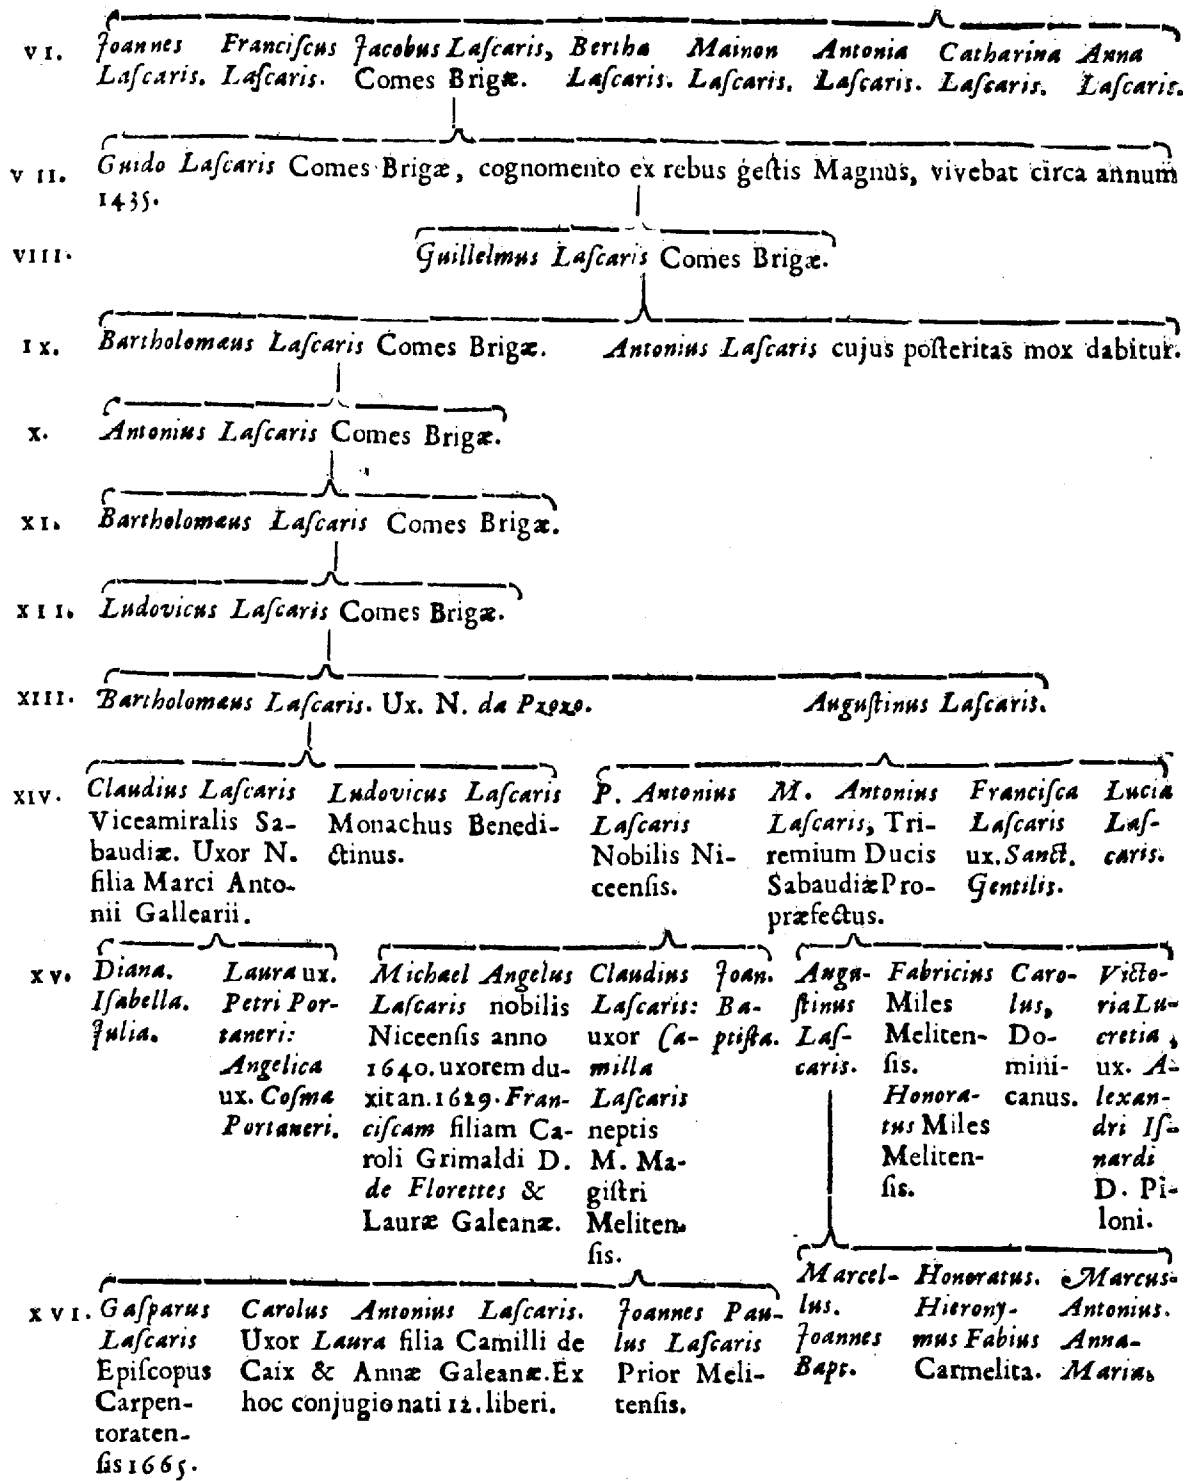 VI. Joannes Franciſcus Jacobus Laſcaris, Bertha Mainon Antonia Catharina Anna
Laſcaris. Laſcaris. Comes Brigæ. Laſcaris. Laſcaris. Laſcaris. Laſcaris. Laſcaris.
VII. Guido Laſcaris Comes Brigæ, cognomento ex rebus geſtis Magnus, vivebat circa annum
1435.
VIII. Guillelmus Laſcaris Comes Brigæ.
IX. Bartholomæus Laſcaris Comes Brigæ. Antonius Laſcaris cujus poſteritas mox dabitur.
X. Antonius Laſcaris Comes Brigæ.
XI. Bartholomæus Laſcaris Comes Brigæ.
XII. Ludovicus Laſcaris Comes Brigæ.
XIII. Bartholomæus Laſcaris. Ux. N. da Pzozo. Auguſtinus Laſcaris.
XIV. Claudius Laſcaris
Viceamiralis Sa-
baudiæ. Uxor N.
filia Marci Anto-
nii Gallearii.
Ludovicus Laſcaris
Monachus Benedi-
ctinus.
P. Antonius
Laſcaris
Nobilis Ni-
ceenſis.
M. Antonius
Laſcaris, Tri-
remium Ducis
Sabaudiæ Pro-
præfectus.
Franciſca
Laſcaris
ux. Sanct.
Gentilis.
Lucia
Laſ-
caris.
XV. Diana.
Iſabella.
Julia.
Laura ux.
Petri Por-
taneri:
Angelica
ux. Coſmæ
Portaneri.
Michael Angelus
Laſcaris nobilis
Niceenſis anno
1640. uxorem du-
xit an. 1629. Fran-
ciſcam filiam Ca-
roli Grimaldi D.
de Florettes &
Lauræ Galeanæ.
Claudius
Laſcaris:
uxor Ca-
milla
Laſcaris
neptis
M. Ma-
giſtri
Meliten-
ſis.
Joan.
Ba-
ptiſta.
Augu-
ſtinus
Laſ-
caris.
Fabricius
Miles
Meliten-
ſis.
Honora-
tus Miles
Meliten-
ſis.
Caro-
lus,
Do-
mini-
canus.
Victo-
ria Lu-
cretia,
ux. A-
lexan-
dri Iſ-
nardi
D. Pi-
loni.
XVI. Gaſparus
Laſcaris
Epiſcopus
Carpen-
toraten-
ſis 1665.
Carolus Antonius Laſcaris.
Uxor Laura filia Camilli de
Caix & Annæ Galeanæ. Ex
hoc conjugio nati 12. liberi.
Joannes Pau-
lus Laſcaris
Prior Meli-
tenſis.
Marcel-
lus.
Joannes
Bapt.
Honoratus.
Hierony-
mus Fabius
Carmelita.
Marcus-
Antonius.
Anna-
Maria.